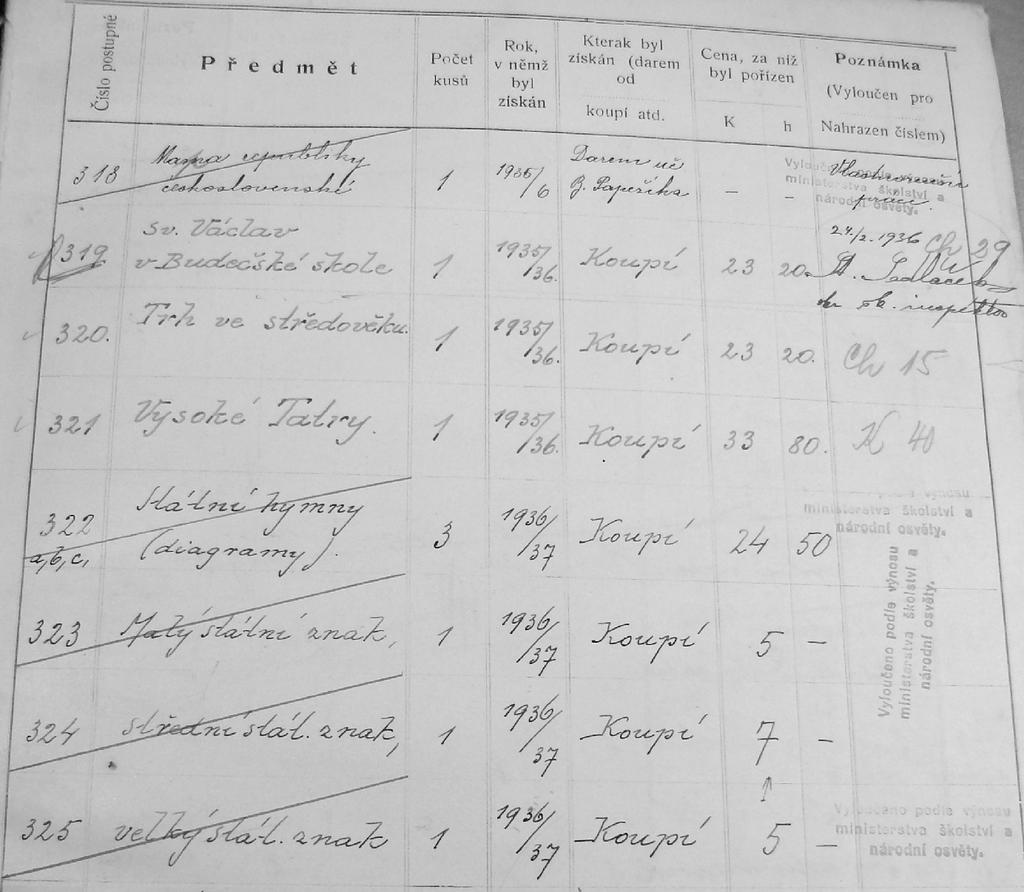 Číslo postupné
Předmět
Počet
kusů
Rok,
v němž
byl
získán
Kterak byl
získán (darem
od
koupí atd.
Cena, za niž
byl pořízen
K h
Poznámka
(Vyloučen pro
Nahrazen číslem)
318 Mapa republiky
československé 1 1935/6 Darem uč.
Papežíka – –
Vyloučeno podle výnosu
ministerstva školství a
národní osvěty.
práce.
319 sv. Václav
v Budečské škole 1 1935/36. Koupí 23 20.
24./2. 1936 Ch 29
A. Sedláček
ok. inspektor
320. Trh ve středověku. 1 1935/36. Koupí 23 20. Ch 15
321 Vysoké Tatry. 1 1935/36. Koupí 33 80. K 40
322 Státní hymny
a, b, c, (diagramy). 3 1936/37 Koupí 24 50
Vyloučeno podle výnosu
ministerstva školství a
národní osvěty.
323 Malý státní znak, 1 1936/37 Koupí 5 –
Vyloučeno podle výnosu
ministerstva školství a
národní osvěty.
324 střední stát. znak, 1 1936/37 Koupí 7 –
325 velký stát. znak 1 1936/37 Koupí 5 –
Vyloučeno podle výnosu
ministerstva školství a
národní osvěty.